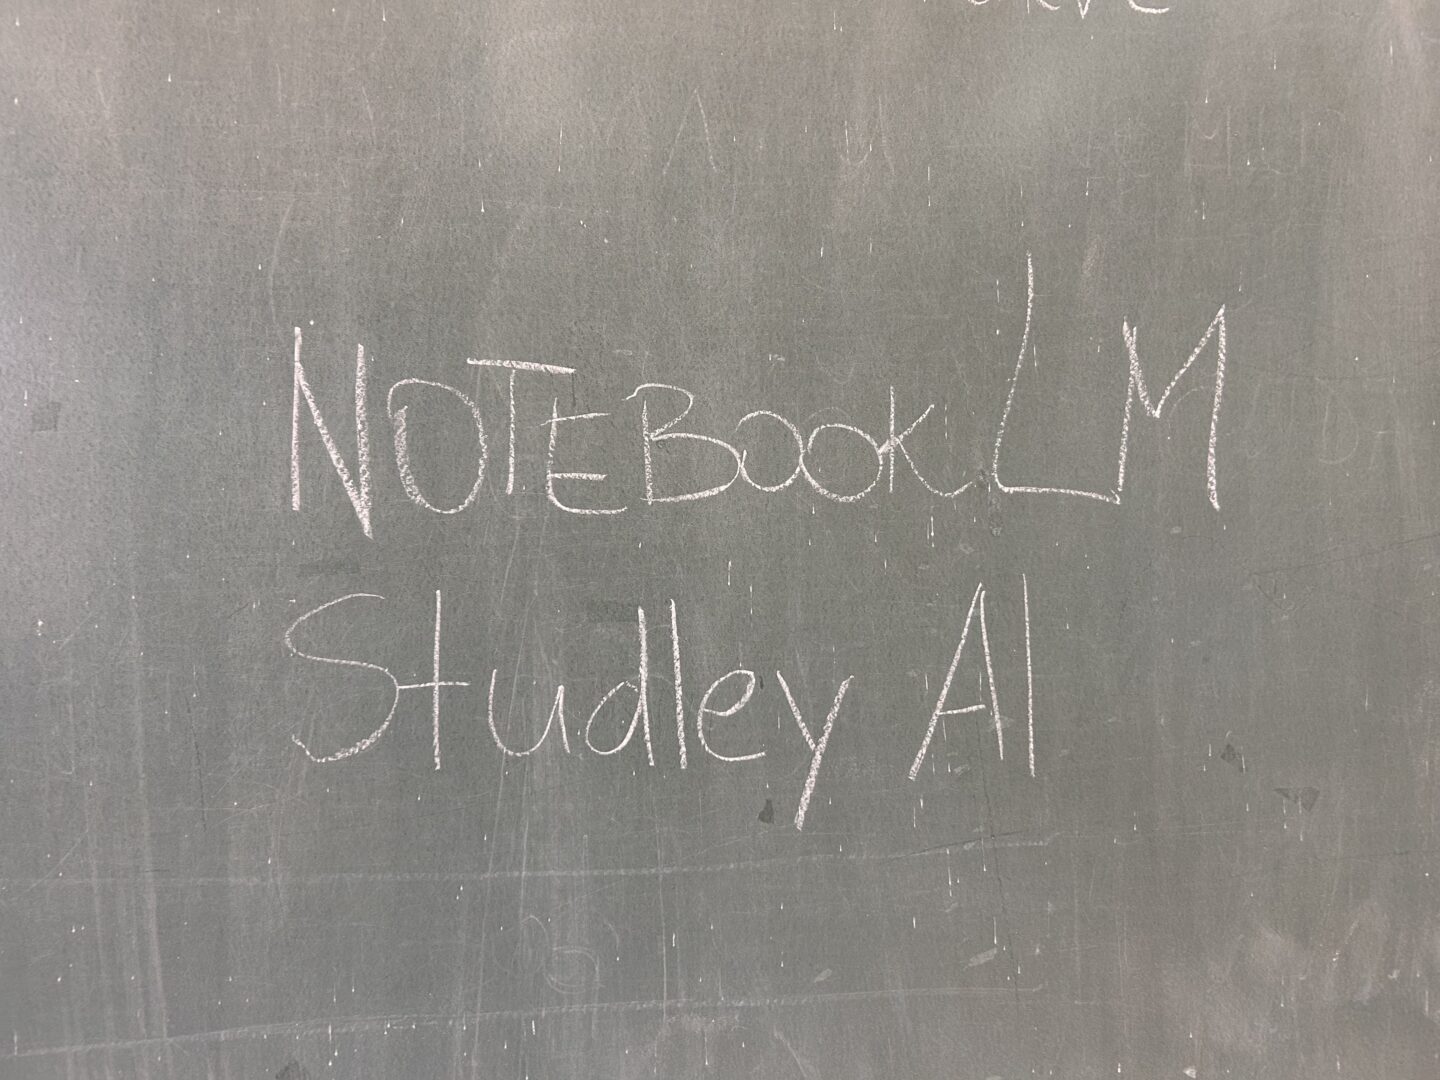 NOTEBook LM
Studley AI